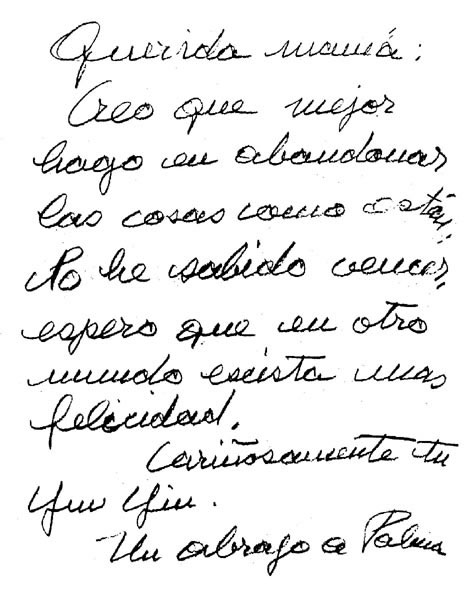 Querida mamá:
Creo que mejor
hago en abandonar
las cosas como están.
No he sabido vencer,
espero que en otro
mundo exista mas
felicidad.
Cariñosamente tu
Yiu Yiu.
Un abrazo a Palma